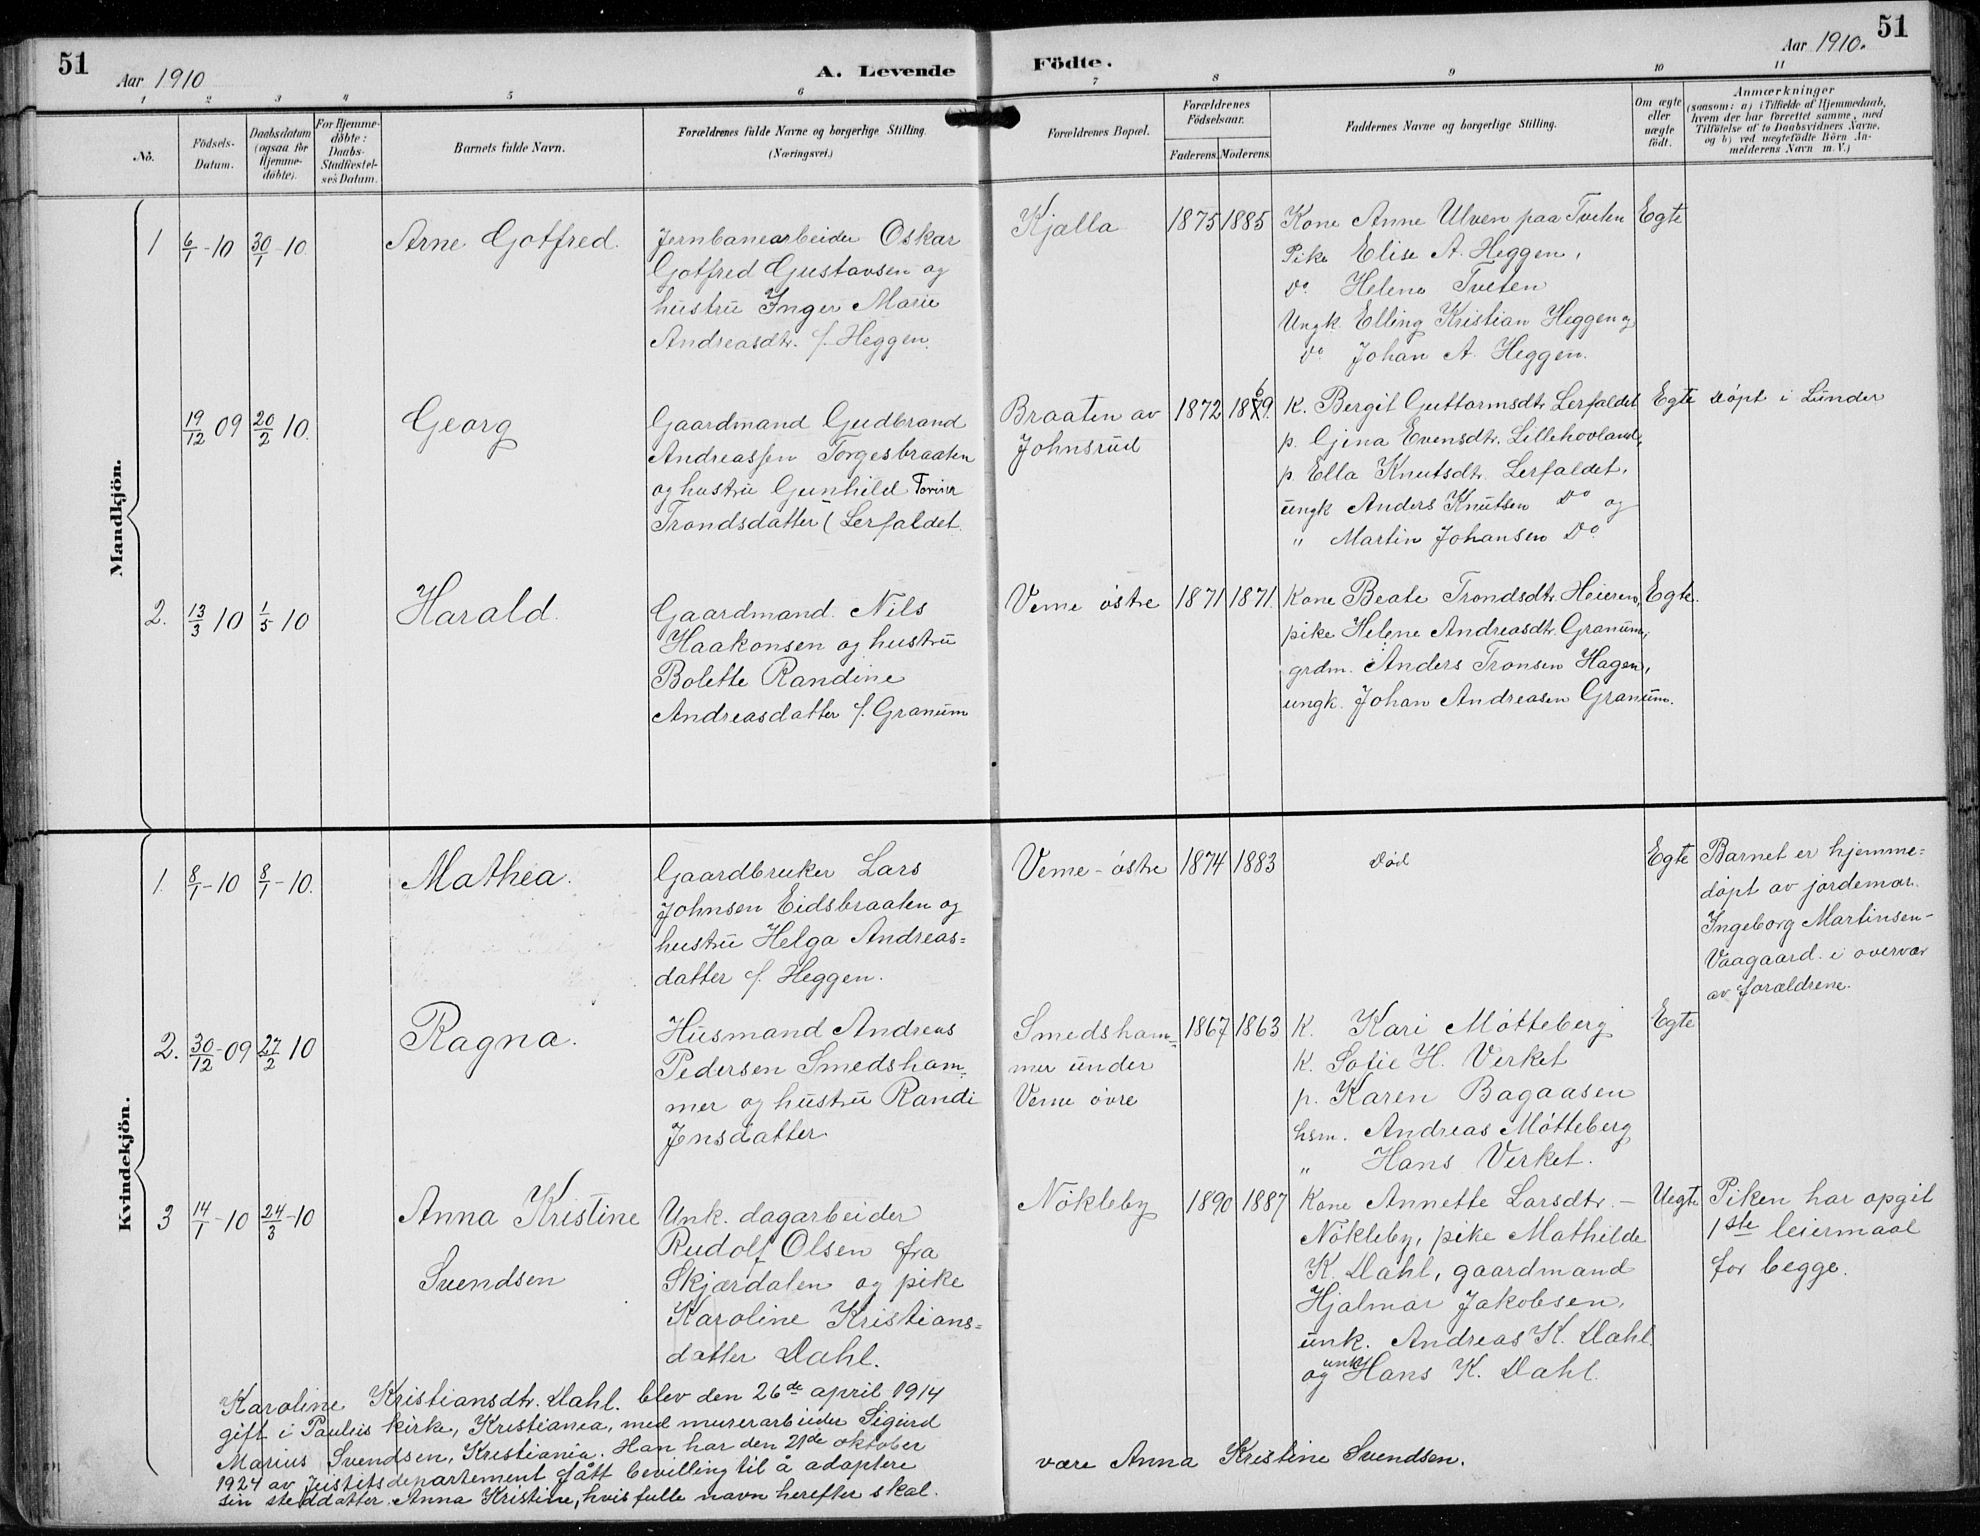 51
Aar 1910
A. Levende
Födte.
Aar 1910.
51
1 2 3 4 5 6 7 8 9 10 11
No.
Födsels-
Datum.
Daabsdatum
(ogsaa for
Hjemme-
döbte).
For Hjemme-
döbte:
Daabs-
Stadfæstel-
ses Datum.
Barnets fulde Navn.
Forældrenes fulde Navne og borgerlige Stilling.
(Næringsvei.)
Forældrenes Bopæl.
Forældrenes
Födselsaar.
Faderens.
Moderens.
Faddernes Navne og borgerlige Stilling.
Om ægte
eller
uægte
født.
Anmærkninger
(saasom: a) i Tilfælde af Hjemmedaab,
hvem der har forrettet samme, med
Tilföielse af to Daabsvidners Navne,
og b) ved uægtefödte Börn An-
melderens Navn m. V.)
Mandkjön.
1 6/1-10 30/1-10. Arne Gotfred.
Jernbanearbeider Oskar
Gotfred Gustavsen og
hustru Inger Marie
Andreasdtr. f. Heggen.
Kjalla 1875 1885
Kone Anne Ulven paa Tveten
Pike Elise A. Heggen,
do. Helene Tveten
Ungk. Elling Kristian Heggen og
do Johan A. Heggen.
Egte
19/12 09 20/2 10. Georg
Gaardmand Gudbrand
Andreassen Torgesbraaten
og hustru Gunhild
Trondsdatter ( Lerfaldet.
Braaten av
Johnsrud
1872 1869.
K. Bergit Guttormsdtr Lerfaldet
p. Gina Evensdtr. Lillehovland,
p. Ella Knutsdtr. Lerfaldet,
ungk Anders Knutsen Do og
" Martin Johansen Do.
Egte døpt i Lunder
2. 13/3 10 1/5 10 Harald.
Gaardmand. Nils
Haakonsen og hustru
Bolette Randine
Andreasdatter f. Granum
Veme østre 1871 1871.
Kone Beate Trondsdtr. Heieren,
pike Helene Andreasdtr. Granum,
grdm. Anders Tronsen Hagen,
ungk. Johan Andreasen Granum.
Egte.
Kvindekjön.
1. 8/1-10 8/1-10. Mathea.
Gaardbruker Lars
Johnsen Eidsbraaten og
hustru Helga Andreas=
datter f. Heggen.
Veme-østre 1874 1883
død
Egte
Barnet er hjemme=
døpt av jordemor.
Ingeborg Martinsen-
Vaagaard. i overvær
av forældrene.
2. 30/12-09 27/2 10 Ragna.
Husmand Andreas
Pedersen Smedsham=
mer og hustru Randi
Jensdatter
Smedsham=
mer under
Veme øvre
1867 1863
K. Kari Møtteberg
K. Sofie H. Verket
p. Karen Bagaasen
hsm. Andreas Møtteberg
" Hans Verket.
Egte
3 14/1-10 24/3-10 Anna Kristine
Svendsen
Unk. dagarbeider
Rudolf Olsen fra
Skjærdalen og pike
Karoline Kristians=
datter Dahl.
Nøkleby 1890 1887
Kone Annette Larsdtr. -
Nøkleby, pike Mathilde
K. Dahl, gaardmand
Hjalmar Jakobsen,
unk. Andreas K. Dahl
og unk. Hans K. Dahl.
Uegte
Piken har opgit
1ste leiermaal
for begge.
Karoline Kristiansdtr. Dahl. blev den 26de april 1914
gift i Paulus kirke, Kristiania, med murerarbeider Sigurd
Marius Svendsen, Kristiania. Han har den 21de oktober
1924 av Justitsdepartement fått bevilling til å adoptere
sin steddatter. Anna Kristine, hvis fulle navn herefter skal.
være Anna Kristine Svendsen.